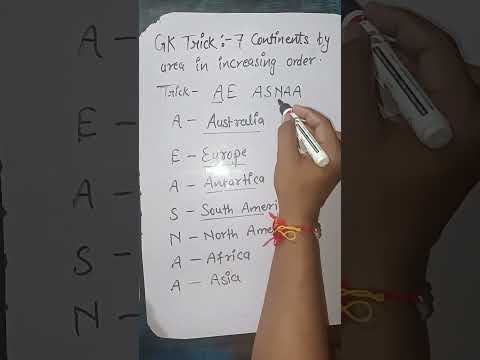 GK Trick :- 7 Continents by
area in increasing order.
Trick - AE ASNAA
A - Australia
E - Europe
A - Antartica
S - South Ameri
N - North Ame
A - Africa
A - Asia